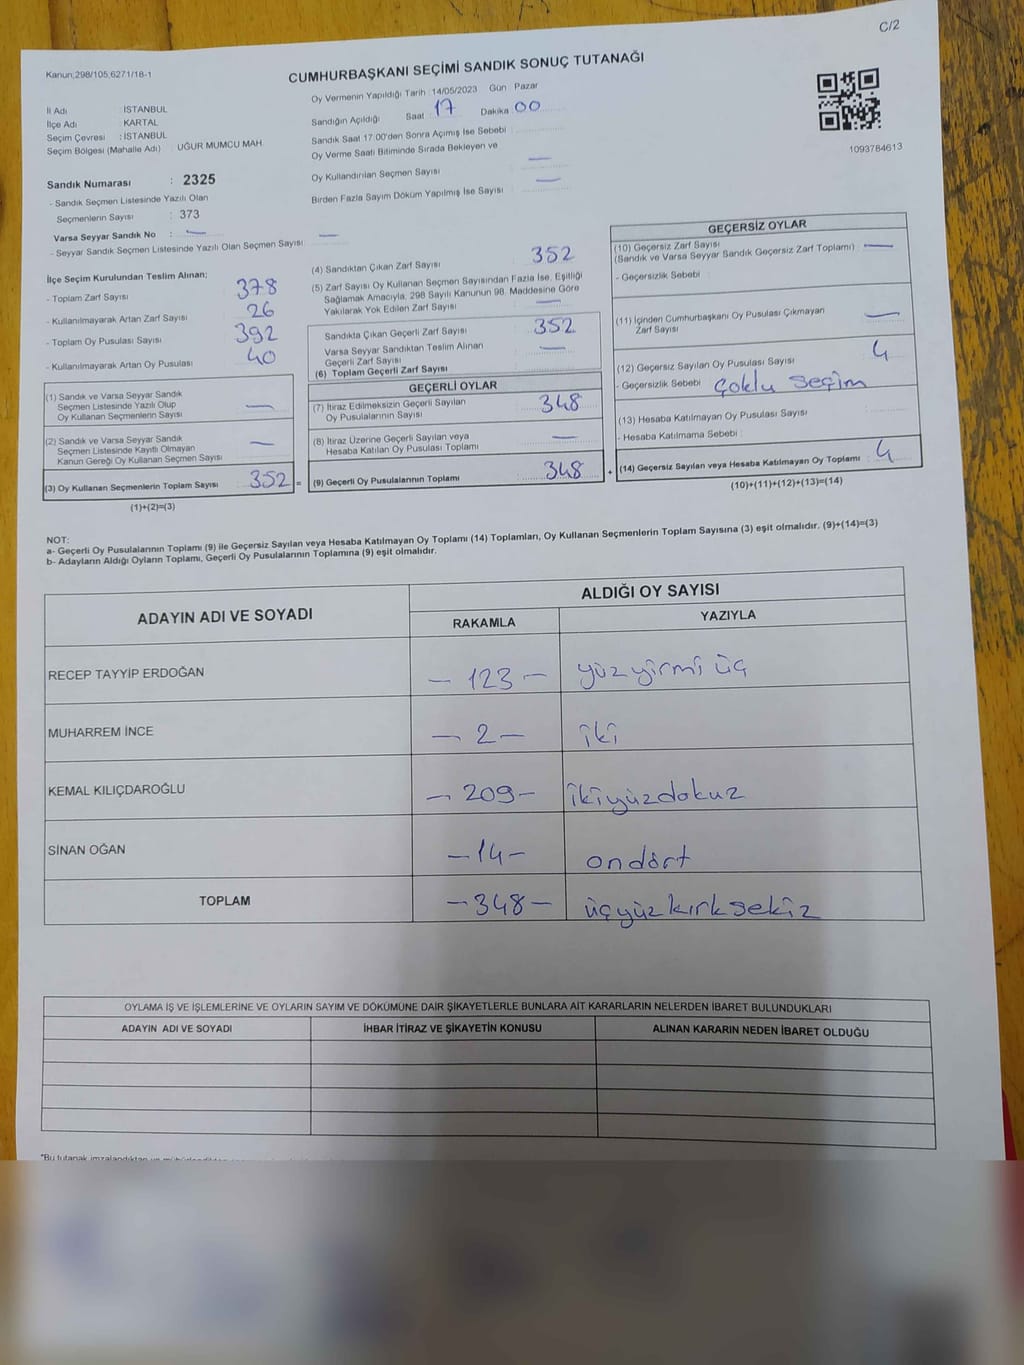 C/2
Kanun;298/105,6271/18-1
CUMHURBAŞKANI SEÇİMİ SANDIK SONUÇ TUTANAĞI
İl Adı : İSTANBUL
İlçe Adı : KARTAL
Seçim Çevresi : İSTANBUL
Seçim Bölgesi (Mahalle Adı) : UĞUR MUMCU MAH.
Sandık Numarası : 2325
- Sandık Seçmen Listesinde Yazılı Olan
Seçmenlerin Sayısı : 373
Varsa Seyyar Sandık No : —
- Seyyar Sandık Seçmen Listesinde Yazılı Olan Seçmen Sayısı : —
Oy Vermenin Yapıldığı Tarih : 14/05/2023 Gün Pazar
Sandığın Açıldığı Saat : 17 Dakika : 00
Sandık Saat 17:00'den Sonra Açımış İse Sebebi :
Oy Verme Saati Bitiminde Sırada Bekleyen ve
Oy Kullandırılan Seçmen Sayısı : —
Birden Fazla Sayım Döküm Yapılmış İse Sayısı : —
1093784613
İlçe Seçim Kurulundan Teslim Alınan;
- Toplam Zarf Sayısı : 378
- Kullanılmayarak Artan Zarf Sayısı : 26
- Toplam Oy Pusulası Sayısı : 392
- Kullanılmayarak Artan Oy Pusulası : 40
(1) Sandık ve Varsa Seyyar Sandık
Seçmen Listesinde Yazılı Olup
Oy Kullanan Seçmenlerin Sayısı : —
(2) Sandık ve Varsa Seyyar Sandık
Seçmen Listesinde Kayıtlı Olmayan
Kanun Gereği Oy Kullanan Seçmen Sayısı : —
(3) Oy Kullanan Seçmenlerin Toplam Sayısı : 352 =
(1)+(2)=(3)
(4) Sandıktan Çıkan Zarf Sayısı : 352
(5) Zarf Sayısı Oy Kullanan Seçmen Sayısından Fazla İse, Eşitliği
Sağlamak Amacıyla, 298 Sayılı Kanunun 98. Maddesine Göre
Yakılarak Yok Edilen Zarf Sayısı : —
Sandıkta Çıkan Geçerli Zarf Sayısı : 352
Varsa Seyyar Sandıktan Teslim Alınan
Geçerli Zarf Sayısı : —
(6) Toplam Geçerli Zarf Sayısı :
GEÇERLİ OYLAR
(7) İtiraz Edilmeksizin Geçerli Sayılan
Oy Pusulalarının Sayısı : 348
(8) İtiraz Üzerine Geçerli Sayılan veya
Hesaba Katılan Oy Pusulası Toplamı : —
(9) Geçerli Oy Pusulalarının Toplamı : 348 +
GEÇERSİZ OYLAR
(10) Geçersiz Zarf Sayısı : —
(Sandık ve Varsa Seyyar Sandık Geçersiz Zarf Toplamı)
- Geçersizlik Sebebi :
(11) İçinden Cumhurbaşkanı Oy Pusulası Çıkmayan
Zarf Sayısı : —
(12) Geçersiz Sayılan Oy Pusulası Sayısı : 4
- Geçersizlik Sebebi : çoklu seçim
(13) Hesaba Katılmayan Oy Pusulası Sayısı :
- Hesaba Katılmama Sebebi :
(14) Geçersiz Sayılan veya Hesaba Katılmayan Oy Toplamı : 4
(10)+(11)+(12)+(13)=(14)
NOT:
a- Geçerli Oy Pusulalarının Toplamı (9) ile Geçersiz Sayılan veya Hesaba Katılmayan Oy Toplamı (14) Toplamları, Oy Kullanan Seçmenlerin Toplam Sayısına (3) eşit olmalıdır. (9)+(14)=(3)
b- Adayların Aldığı Oyların Toplamı, Geçerli Oy Pusulalarının Toplamına (9) eşit olmalıdır.
ADAYIN ADI VE SOYADI ALDIĞI OY SAYISI
RAKAMLA YAZIYLA
RECEP TAYYİP ERDOĞAN — 123 — yüzyirmi üç
MUHARREM İNCE — 2 — iki
KEMAL KILIÇDAROĞLU — 209 — ikiyüzdokuz
SİNAN OĞAN — 14 — ondört
TOPLAM — 348 — üçyüzkırksekiz
OYLAMA İŞ VE İŞLEMLERİNE VE OYLARIN SAYIM VE DÖKÜMÜNE DAİR ŞİKAYETLERLE BUNLARA AİT KARARLARIN NELERDEN İBARET BULUNDUKLARI
ADAYIN ADI VE SOYADI İHBAR İTİRAZ VE ŞİKAYETİN KONUSU ALINAN KARARIN NEDEN İBARET OLDUĞU